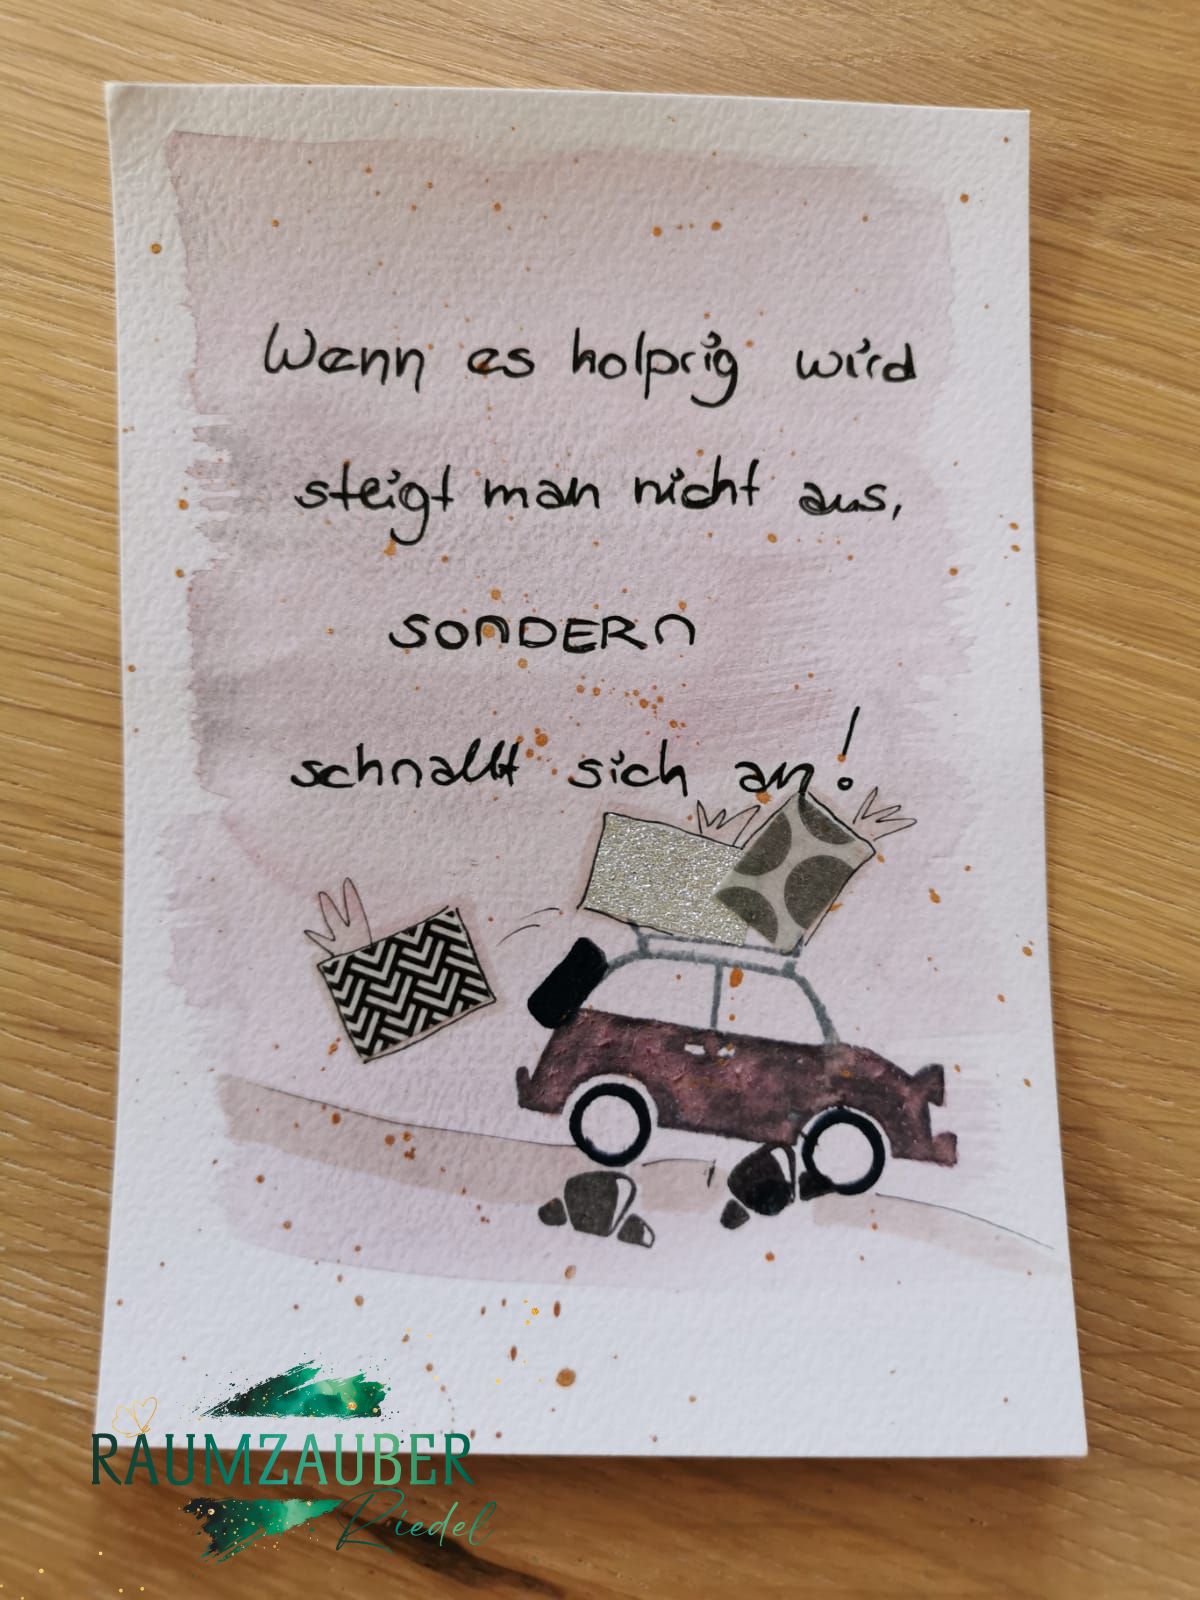 Wenn es holprig wird
steigt man nicht aus,
SONDERN
schnallt sich an!
RAUMZAUBER
Riedel